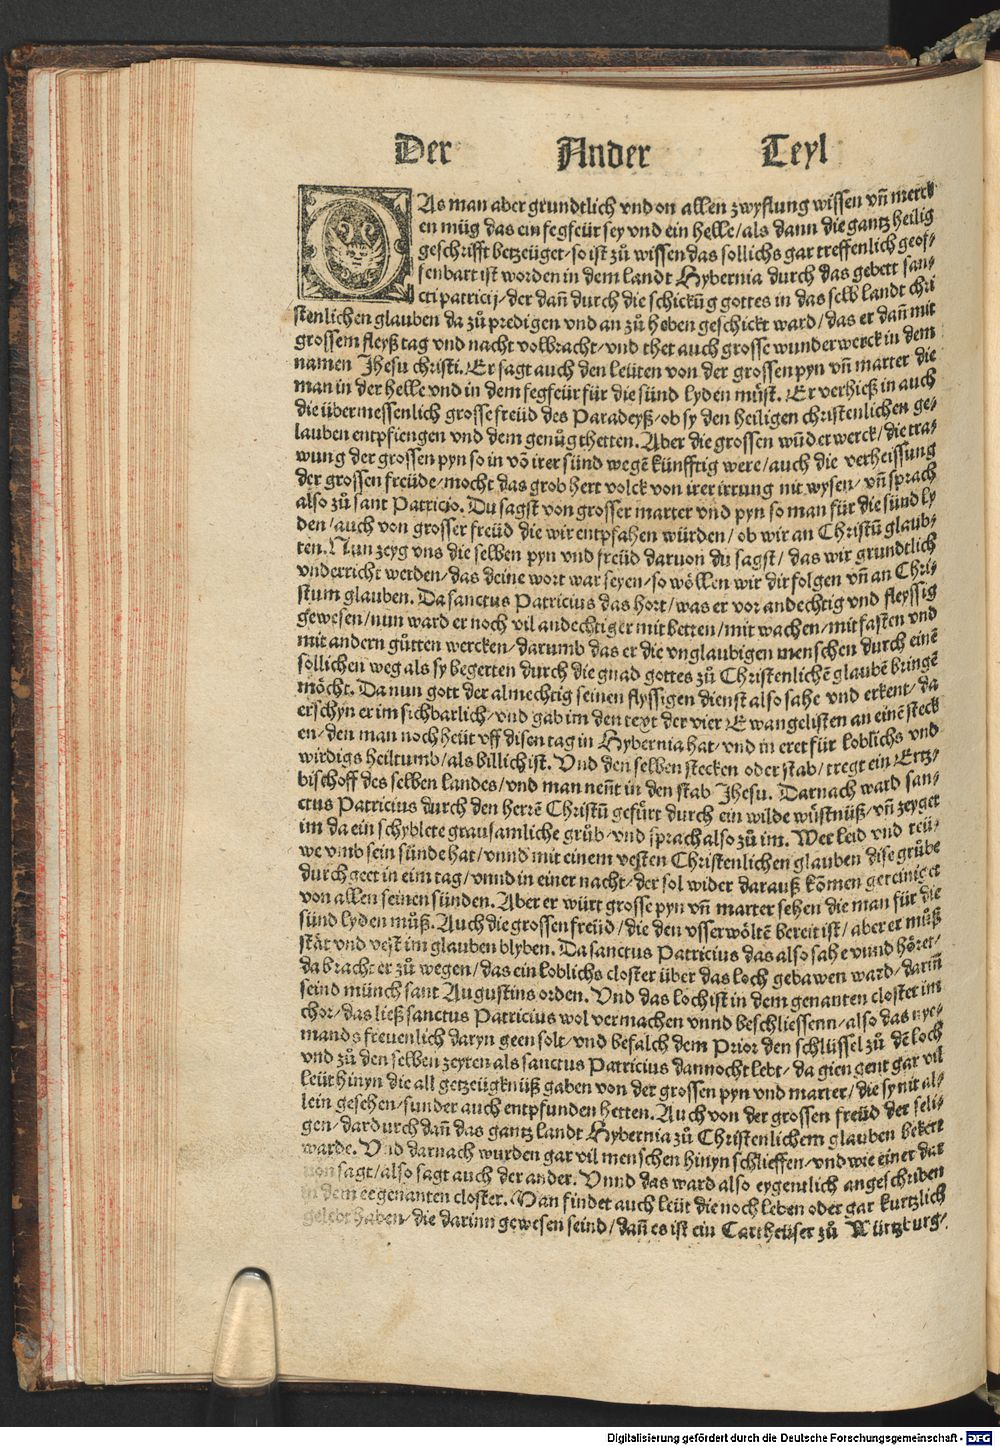 Der Ander Teyl
DAs man aber grundtlich vnd on allen zwyflung wissen vñ merck
en müg das ein fegfeür sey vnd ein helle/als dann die gantz heilig
geschrifft betzeüget/so ist zů wissen das sollichs gar treffenlich geof⸗
fenbart ist worden in dem landt Hybernia durch das gebett san⸗
cti patricij/der dañ durch die schickūg gottes in das selb landt chri
stenlichen glauben da zů predigen vnd an zů heben geschickt ward/das er dañ mit
grossem fleyß tag vnd nacht volbracht/vnd thet auch grosse wunderwerck in dem
namen Jhesu christi. Er sagt auch den leüten von der grossen pyn vñ marter die
man in der helle vnd in dem fegfeür für die sünd lyden můst. Er verhieß in auch
die übermessenlich grosse freüd des Paradeyß/ob sy den heiligen christenlichen ge⸗
lauben entpfiengen vnd dem genůg thetten. Aber die grossen wūderwerck/die tra⸗
wung der grossen pyn so in vō irer sünd wegē künfftig were/auch die verheissung
der grossen freüde/mocht das grob hert volck von irer irrung nit wysen/vñ sprach
also zů sant Patricio. Du sagst von grosser marter vnd pyn so man für die sünd ly
den/auch von grosser freüd die wir entpfahen würden/ob wir an Christū glaub⸗
ten. Nun zeyg vns die selben pyn vnd freüd daruon du sagst/das wir grundtlich
vnderricht werden/das deine wort war seyen/so wöllen wir dir folgen vñ an Chri⸗
stum glauben. Da sanctus Patricius das hort/was er vor andechtig vnd fleyssig
gewesen/nun ward er noch vil andechtiger mit betten/mit wachen/mit fasten vnd
mit andern gůtten wercken/darumb das er die vnglaubigen menschen durch einē
sollichen weg als sy begerten durch die gnad gottes zů Christenlichē glaubē bringē
möcht. Da nun gott der almechtig seinen flyssigen dienst also sahe vnd erkent/da
erschyn er im sichbarlich/vnd gab im den text der vier Ewangelisten an einē steck
en/den man noch heüt vff disen tag in Hybernia hat/vnd in eret für loblichs vnd
wirdigs heiltumb/als billich ist. Vnd den selben stecken oder stab/tregt ein Ertz⸗
bischoff des selben landes/vnd man neñt in den stab Jhesu. Darnach ward san⸗
ctus Patricius durch den herrē Christū gefůrt durch ein wilde wůstnüß/vñ zeyget
im da ein schyblete grausamliche grůb/vnd sprach also zů im. Wer leid vnd reü⸗
we vmb sein sünde hat/vnnd mit einem vesten Christenlichen glauben dise grůbe
durch geet in eim tag/vnnd in einer nacht/der sol wider darauß kōmen gereiniget
von allen seinen sünden. Aber er würt grosse pyn vñ marter sehen die man für die
sünd lyden můß. Auch die grossen freüd/die den vsserwöltē bereit ist/aber er můß
stät vnd vest im glauben blyben. Da sanctus Patricius das also sahe vnnd höret/
da bracht er zů wegen/das ein loblichs closter über das loch gebawen ward/dariñ
seind münch sant Augustins orden. Vnd das loch ist in dem genanten closter im
chor/das ließ sanctus Patricius wol vermachen vnnd beschliessenn/also das nye⸗
mands freuenlich daryn geen solt/vnd befalch dem Prior den schlüssel zů dē loch
vnd zů den selben zeyten als sanctus Patricius dannocht lebt/da giengent gar vil
leüt hinyn die all getzeügknüß gaben von der grossen pyn vnd marter/die sy nit al⸗
lein gesehen/sunder auch entpfunden hetten. Auch von der grossen freüd der seli⸗
gen/dardurch dañ das gantz landt Hybernia zů Christenlichem glauben bekert
warde. Vnd darnach wurden gar vil menschen hinyn schlieffen/vnd wie einer dar
von sagt/also sagt auch der ander. Vnnd das ward also eygentlich angeschriben
in dem eegenanten closter. Man findet auch leüt die noch leben oder gar kurtzlich
gelebt haben/die darinn gewesen seind/dañ es ist ein Cartheüser zů Würtzburg/
Digitalisierung gefördert durch die Deutsche Forschungsgemeinschaft - DFG